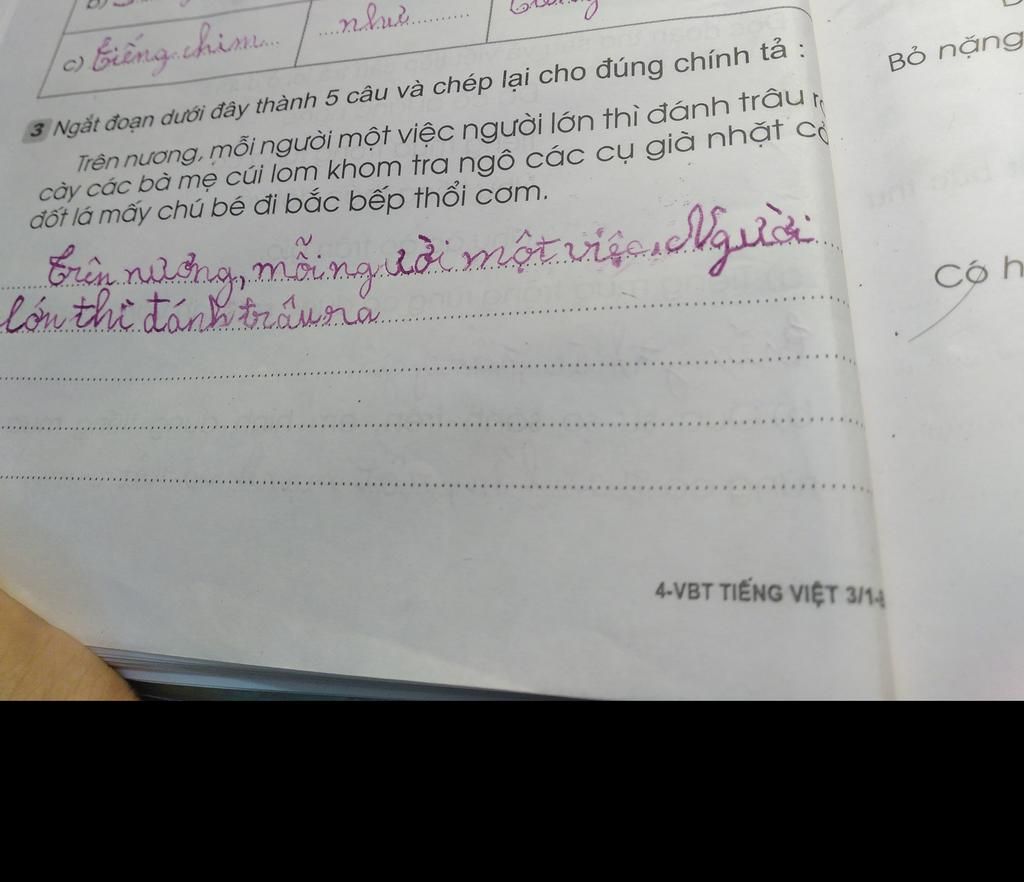 c) tiếng chim
như
3 Ngắt đoạn dưới đây thành 5 câu và chép lại cho đúng chính tả :
Trên nương, mỗi người một việc người lớn thì đánh trâu
cày các bà mẹ cúi lom khom tra ngô các cụ già nhặt
đốt lá mấy chú bé đi bắc bếp thổi cơm.
trên nương, mỗi người một việc. Người
lớn thì đánh trâu ra
4-VBT TIẾNG VIỆT 3/1-
Bỏ nặng
Có h